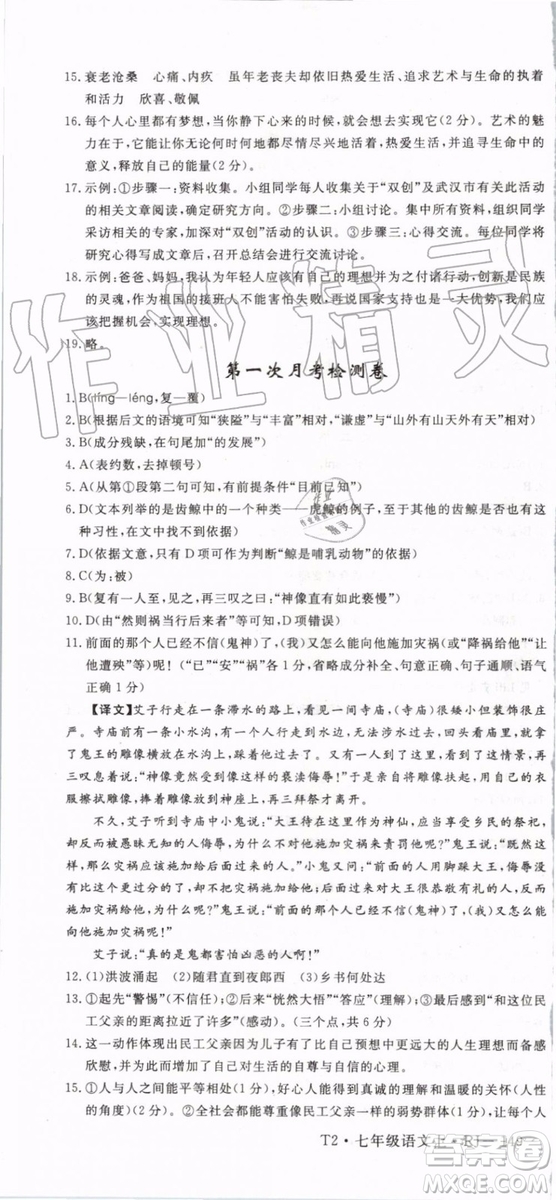 15. 衰老沧桑　心痛、内疚　虽年老丧夫却依旧热爱生活、追求艺术与生命的执着
和活力　欣喜、敬佩
16. 每个人心里都有梦想，当你静下心来的时候，就会意识到它(2分)。艺术的魅力
在于，它能让你无论何时何地都活力四射，激情满怀，热爱生活，并追寻生命中的
意义，释放自己的能量(2分)。
17. 示例：①步骤一：资料收集。小组同学每人收集一份关于“双创”及武汉市有关的
相关文章阅读，确定研究方向。②步骤二：小组讨论。集中所有资料，组织同学
采访相关的专家，加深对“双创”活动的认识。③步骤三：心得交流。每位同学将
研究心得写成文章后，小组同学进行交流讨论。
18. 示例：爸爸、妈妈，我认为年轻人应该有自己的理想并为之付诸行动，创新是民族
的灵魂，作为祖国的接班人不能害怕失败，再说国家支持也是一大优势，我们应
该把握机会、实现理想。
19. 略。
第一次月考检测卷
1. B(líng—léng，复—覆)
2. B(根据后文的语境可知“狭隘”与“丰富”相对，“谦虚”与“山外有山天外有天”相对)
3. B(成分残缺，在句尾加“的发展”)
4. A(表约数，去掉顿号)
5. A(从第①段第二句可知，有前提条件“目前已知”)
6. D(文本列举的是齿鲸中的一个种类——虎鲸的例子，至于其他的齿鲸是否也有
这种习性，无法得知)
7. D(依据文意，只有D项可作为判断“鲸是哺乳动物”的依据)
8. C(为：被)
9. B(复有一人至，见之，再三叹之，“神像直有如此亵慢”)
10. D(由“然则祸当行及居后来者”等可知，D项错误)
11. 前面的那个人已经不信(鬼神)了，(我)又怎么能向他施加灾祸(或“降祸给他”“让
他遭殃”)呢？(“已”“安”“祸”各1分，省略成分补充完整、句子通顺、语气
正确1分)
【译文】艾子行走在一条滞水的路上，看见一间寺庙，(寺庙)很矮小但装饰得庄
严。寺庙前面有一条小水沟，有一个人行走到水边，无法蹚水过去，回头看庙里，就
拿了鬼王的雕像横放在水沟上，踩着雕像过去了。又有一个人来到，看到了这情景，再
三叹息着说：“神像竟然受到这样的亵渎侮辱！”于是这个人亲自扶起雕像，用自己的衣
服擦拭雕像，放到神座上，再三拜祭才离开。
不久，艾子听到寺庙中小鬼说：“大王待在这里作为神，应当享受乡民的祭祀，
反而被愚昧无知的人侮辱，为什么不施加灾祸来责备他们呢？”鬼王说：“既然这
样，那么灾祸应该施加给后面过来的人。”小鬼又问：“前面的人用脚踩大王，侮辱没
有比这更大的了，却不给他施加灾祸；后面来的人，是对大王恭敬的人，反而给他施
加灾祸，为什么呢？”鬼王说：“前面的那个人已经不信(鬼神)了，又怎么能给他施加灾祸呢！”
艾子说：“真的是鬼都害怕凶恶的人啊！”
12. (1)洪波涌起　(2)随君直到夜郎西　(3)乡书何处达
13. ①起先“警惕”(不信任)；②后来“恍然大悟”“答应”(理解)；③最后“觉得和这位民
工父亲的距离拉近了许多”(感动)。(三个点，共6分)
14. 这一动作体现出民工父亲因为儿子有了比自己预想中更远大的人生理想而倍感
欣慰，并激起了自己对生活的自尊与自信的心理。
15. ①在人与人之间能平等对待，真诚的理解和温暖的关怀(人性的关怀、人性的光
辉)(1分)。②进而，全社会都能尊重像民工父亲一样的弱势群体(1分)，让每个人
T2·七年级语文上·RJ— 149
作业精灵